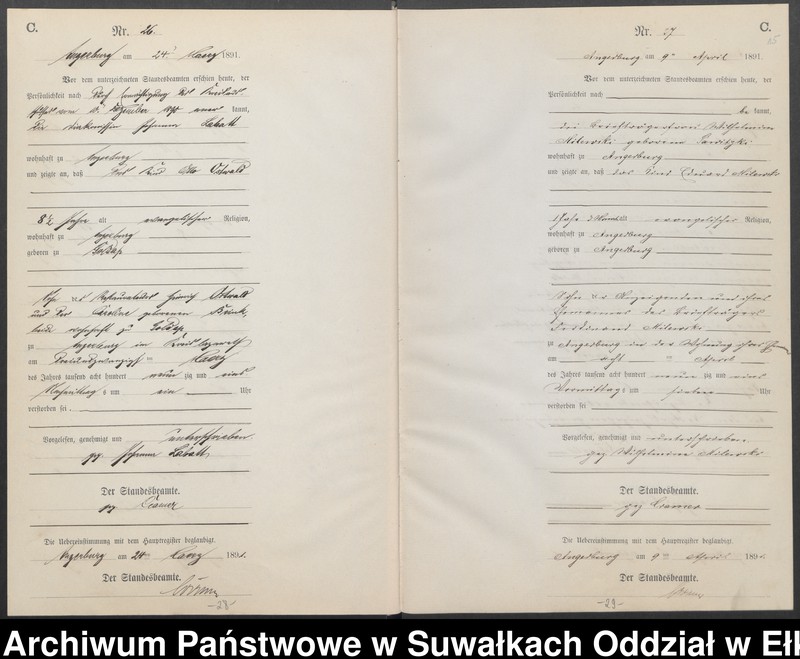 C.
Nr. 26.
Angerburg am 24 ten März 1891.
Vor dem unterzeichneten Standesbeamten erschien heute, der
Persönlichkeit nach
kannt,
Johanna Labatt
wohnhaft zu Angerburg
und zeigte an, daß das Kind Otto Ostwald
8½ Jahre alt evangelischer Religion,
wohnhaft zu Angerburg
geboren zu Goldap
Sohn des Restaurateurs Heinrich Ostwald
und der Caroline geborenen
beide wohnhaft zu Goldap
zu Angerburg im
am März
des Jahres tausend acht hundert neun zig und eins
Nachmittags um ein Uhr
verstorben sei.
Vorgelesen, genehmigt und unterschrieben.
gez Johanna Labatt
Der Standesbeamte.
gez Cramer
Die Uebereinstimmung mit dem Hauptregister beglaubigt.
Angerburg am 24 ten März 1891.
Der Standesbeamte.
-28-
C.
Nr. 27
Angerburg am 9ten April 1891.
Vor dem unterzeichneten Standesbeamten erschien heute, der
Persönlichkeit nach
be kannt,
die Briefträgerfrau Wilhelmine
Milewski geborene
wohnhaft zu Angerburg
und zeigte an, daß das Kind Eduard Milewski
alt evangelischer Religion,
wohnhaft zu Angerburg
geboren zu Angerburg
Sohn der Anzeigenden und ihres
Ehemannes des Briefträgers
Ferdinand Milewski
zu Angerburg in der Wohnung ihres
am acht ten April
des Jahres tausend acht hundert neun zig und eins
Vormittags um sieben Uhr
verstorben sei.
Vorgelesen, genehmigt und unterschrieben
gez Wilhelmine Milewski
Der Standesbeamte.
gez Cramer
Die Uebereinstimmung mit dem Hauptregister beglaubigt.
Angerburg am 9ten April 1891.
Der Standesbeamte.
-29-
Archiwum Państwowe w Suwałkach Oddział w Ełk